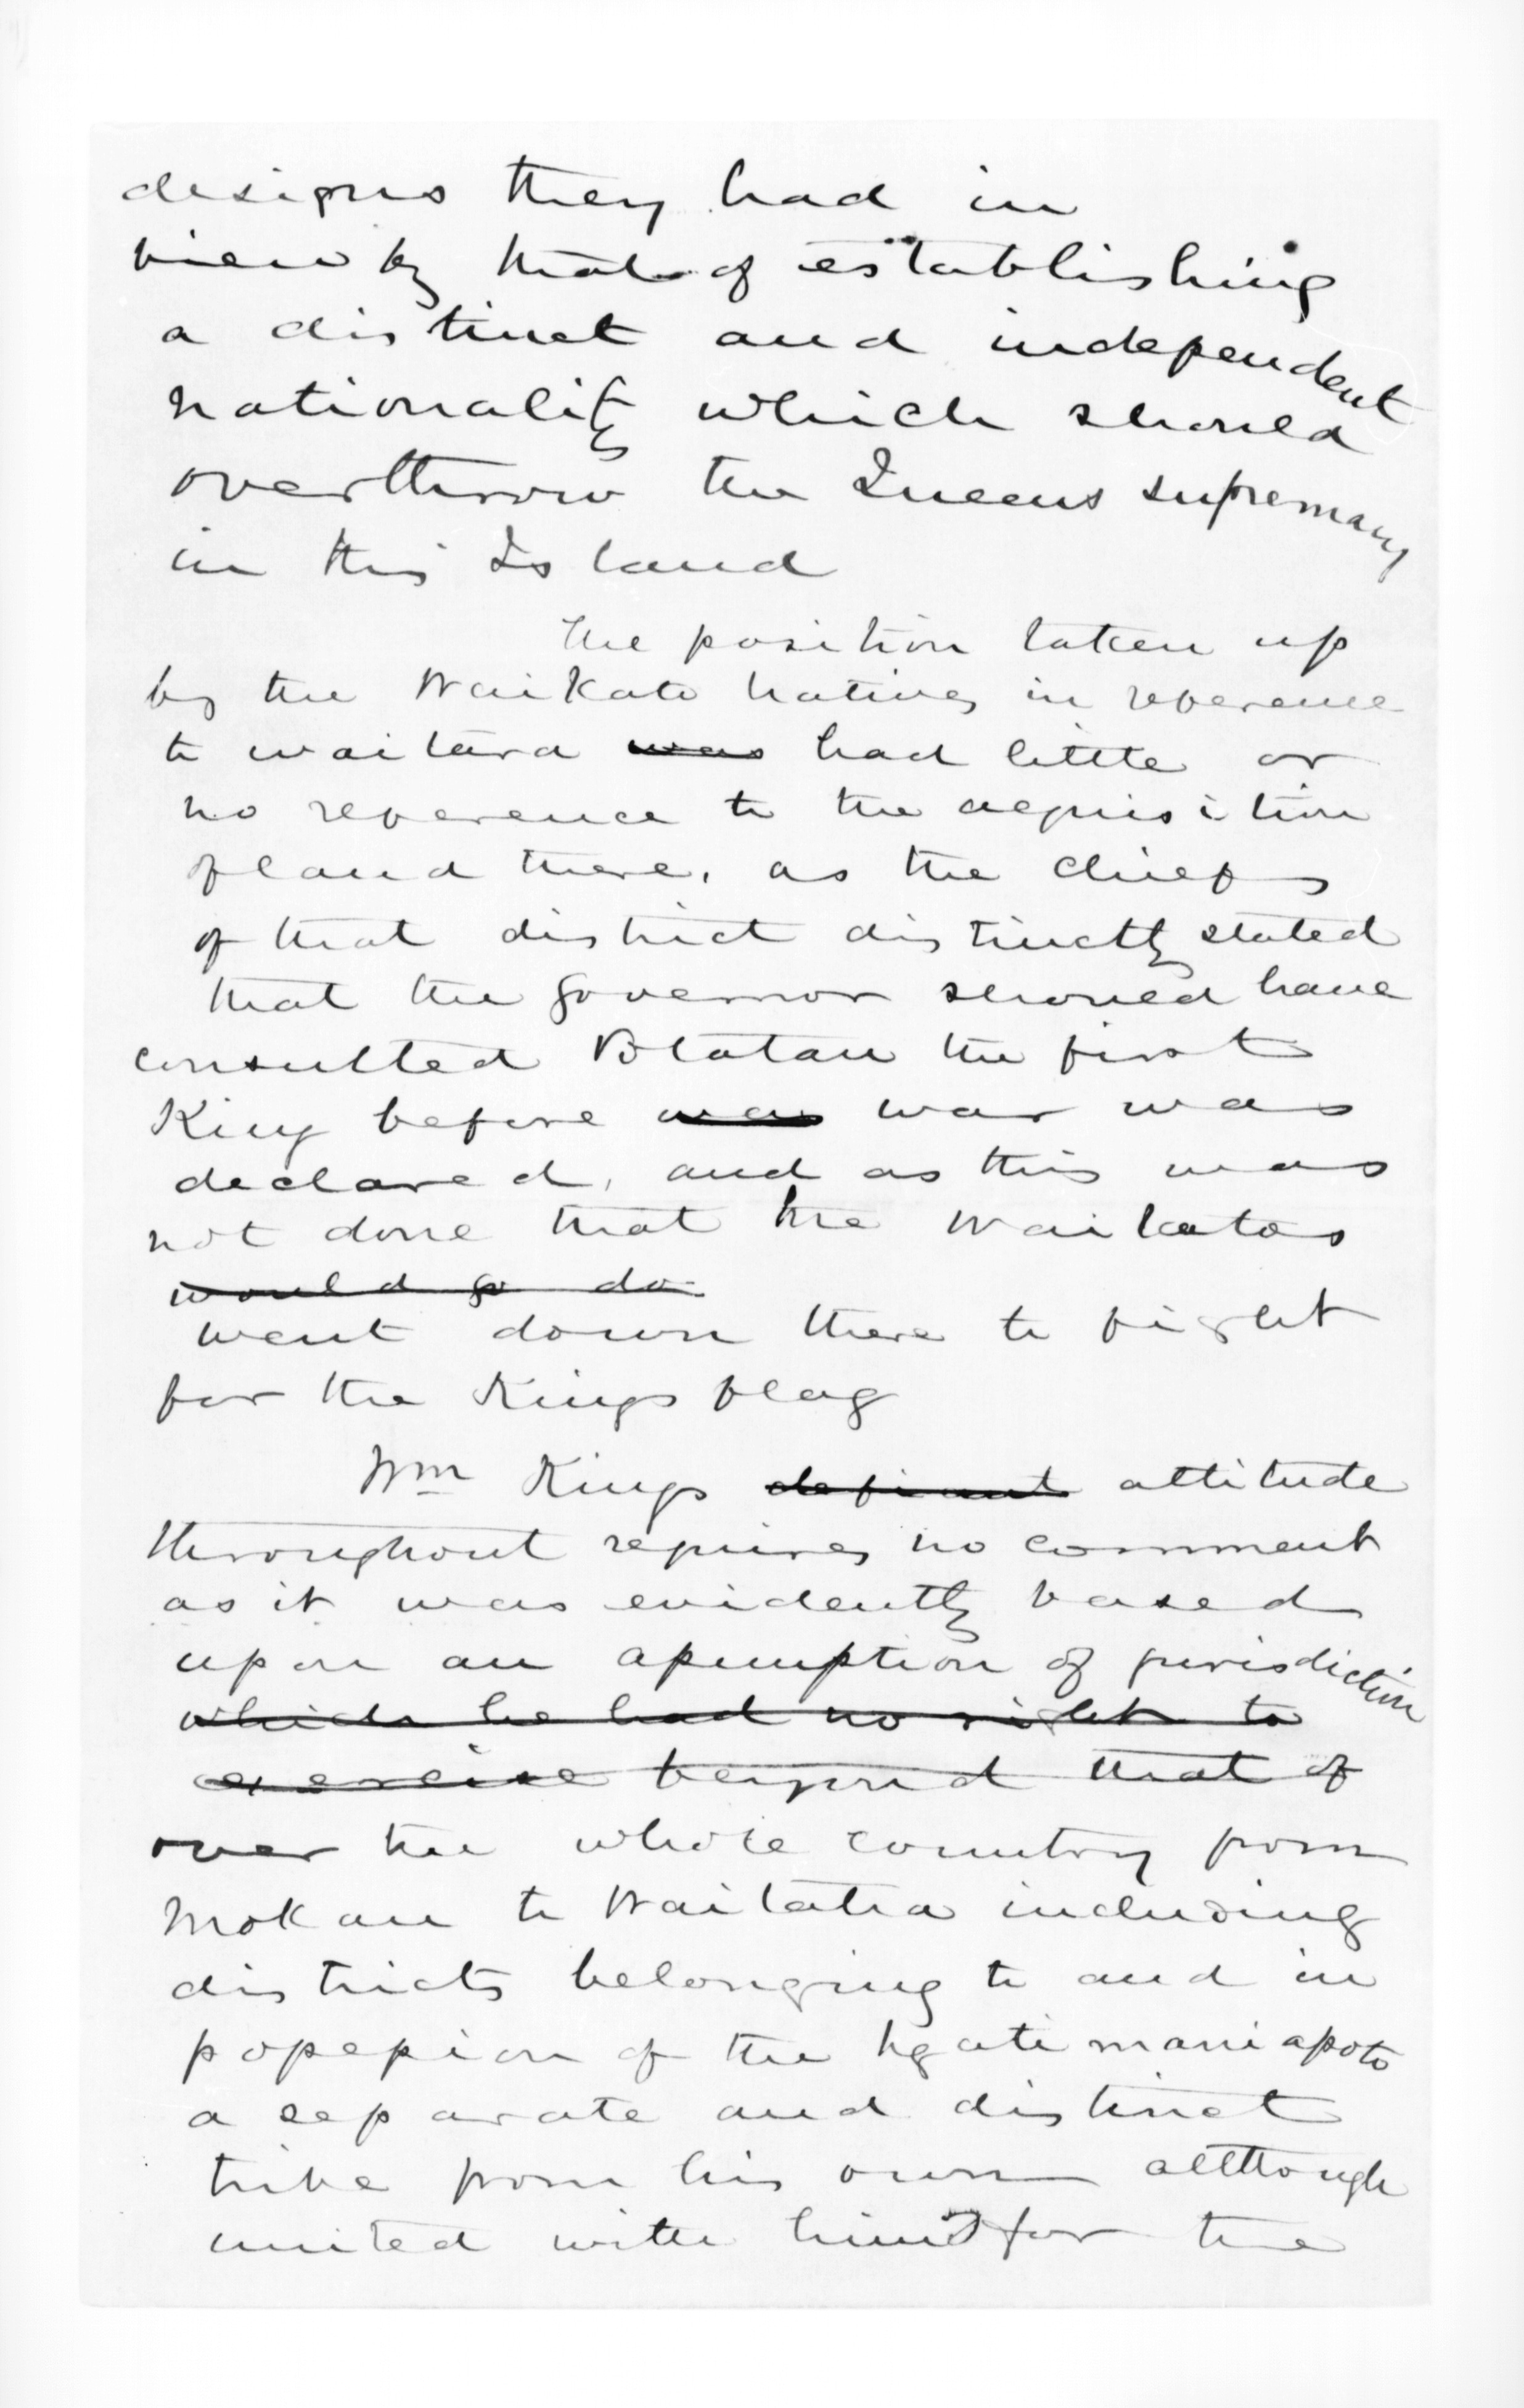 designs they had in
view by that of establishing
a distinct and independent
nationality which should
overthrow the Queens supremacy
in this Island
The position taken up
by the Waikato natives in reference
to Waitara was had little or
no reference to the acquisition
of land there, as the chiefs
of that district distinctly stated
that the Governor should have
consulted Potatau the first
King before was war was
declared, and as this was
not done that the Waikatos
would go do
went down there to fight
for the Kings flag
Wm Kings defiant attitude
throughout requires no comment
as it was evidently based
upon an assumption of jurisdiction
which he had no right to
exercise beyond that of
over the whole country from
Mokau to Waitatra including
districts belonging to and in
possession of the Ngatimaniapoto
a separate and distinct
tribe from his own although
united with him for the